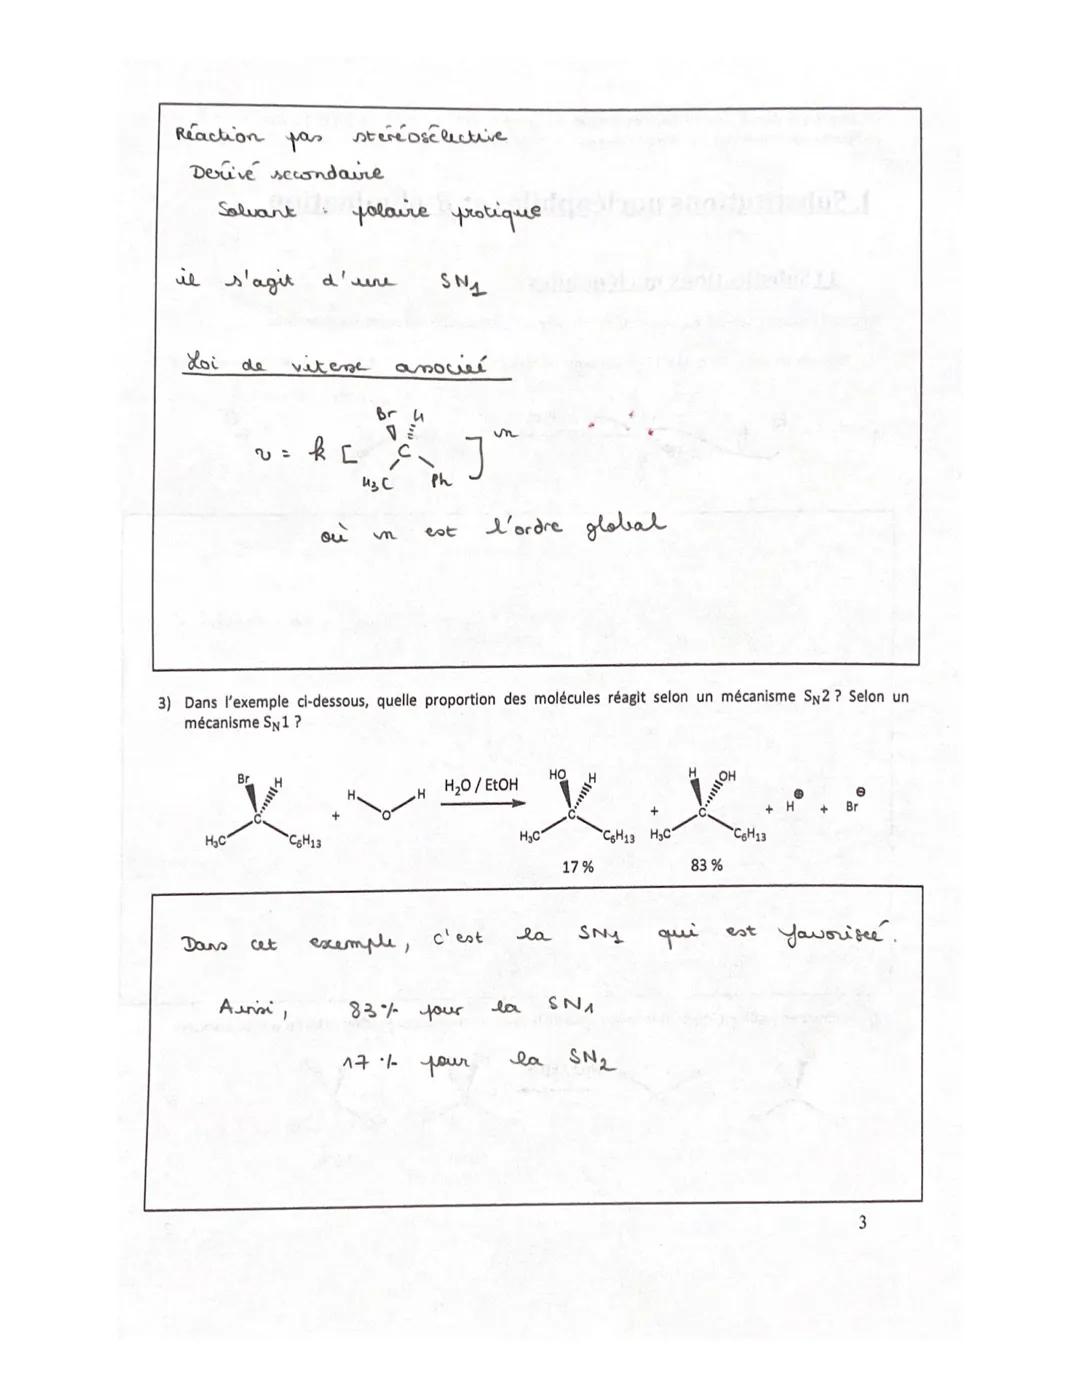 Réaction pas stéréosélective
Dérivé secondaire
Solvant : polaire protique
il s'agit d'une SN1
Loi de vitesse associeé
Br H
v = k [ C ]^n
H3C Ph
où n est l'ordre global
3) Dans l'exemple ci-dessous, quelle proportion des molécules réagit selon un mécanisme SN2 ? Selon un
mécanisme SN1 ?
Br H H H H2O / EtOH HO H H OH
C + O C + C + H⊕ + Br⊖
H3C C6H13 H3C C6H13 H3C C6H13
17 % 83 %
Dans cet exemple, c'est la SN1 qui est favoriseé.
Ainsi, 83 % pour la SN1
17 % pour la SN2
3